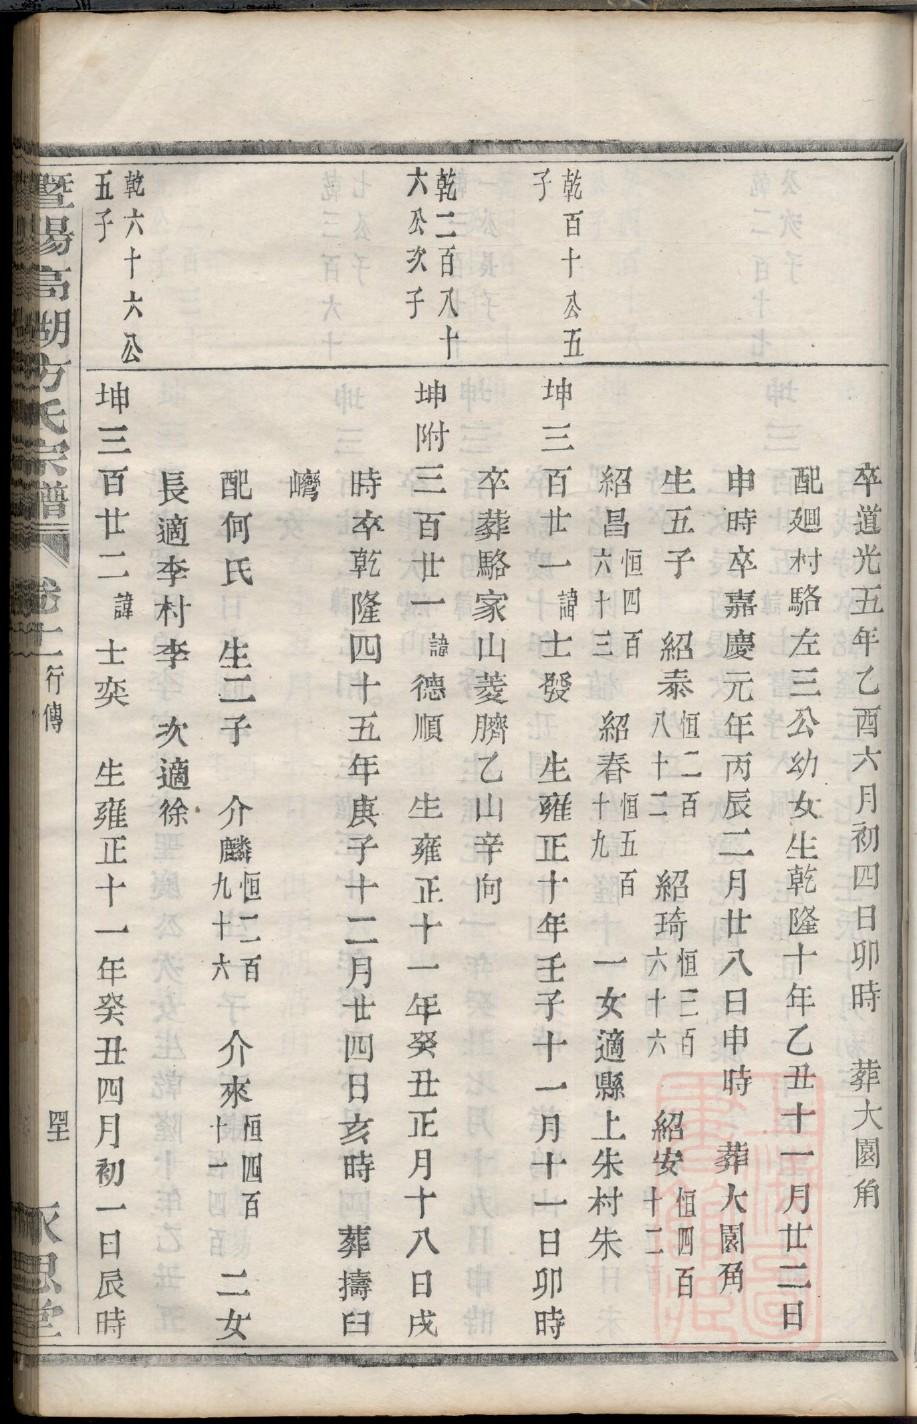 卒道光五年乙酉六月初四日卯時　葬大園角
配廻村駱左三公幼女生乾隆十年乙丑十一月廿二日
申時卒嘉慶元年丙辰二月廿八日申時　葬大園角
生五子　紹泰恒二百八十二　紹琦恒三百六十六　紹安恒四百十二
紹昌恒四百六十三　紹春恒五百十九　一女適縣上朱村朱
乾百十公五子
坤三百廿一諱士發　生雍正十年壬子十一月十一日卯時
卒葬駱家山菱臍乙山辛向
乾二百八十六公次子
坤附三百廿一諱德順　生雍正十一年癸丑正月十八日戌
時卒乾隆四十五年庚子十二月廿四日亥時　葬擣臼
𡾋
配何氏　生二子　介麟恒二百九十六　介來恒四百十一　二女
長適李村李　次適徐
乾六十六公五子
坤三百廿二諱士奕　生雍正十一年癸丑四月初一日辰時
暨陽高湖方氏宗譜　卷十二　行傳　永思堂